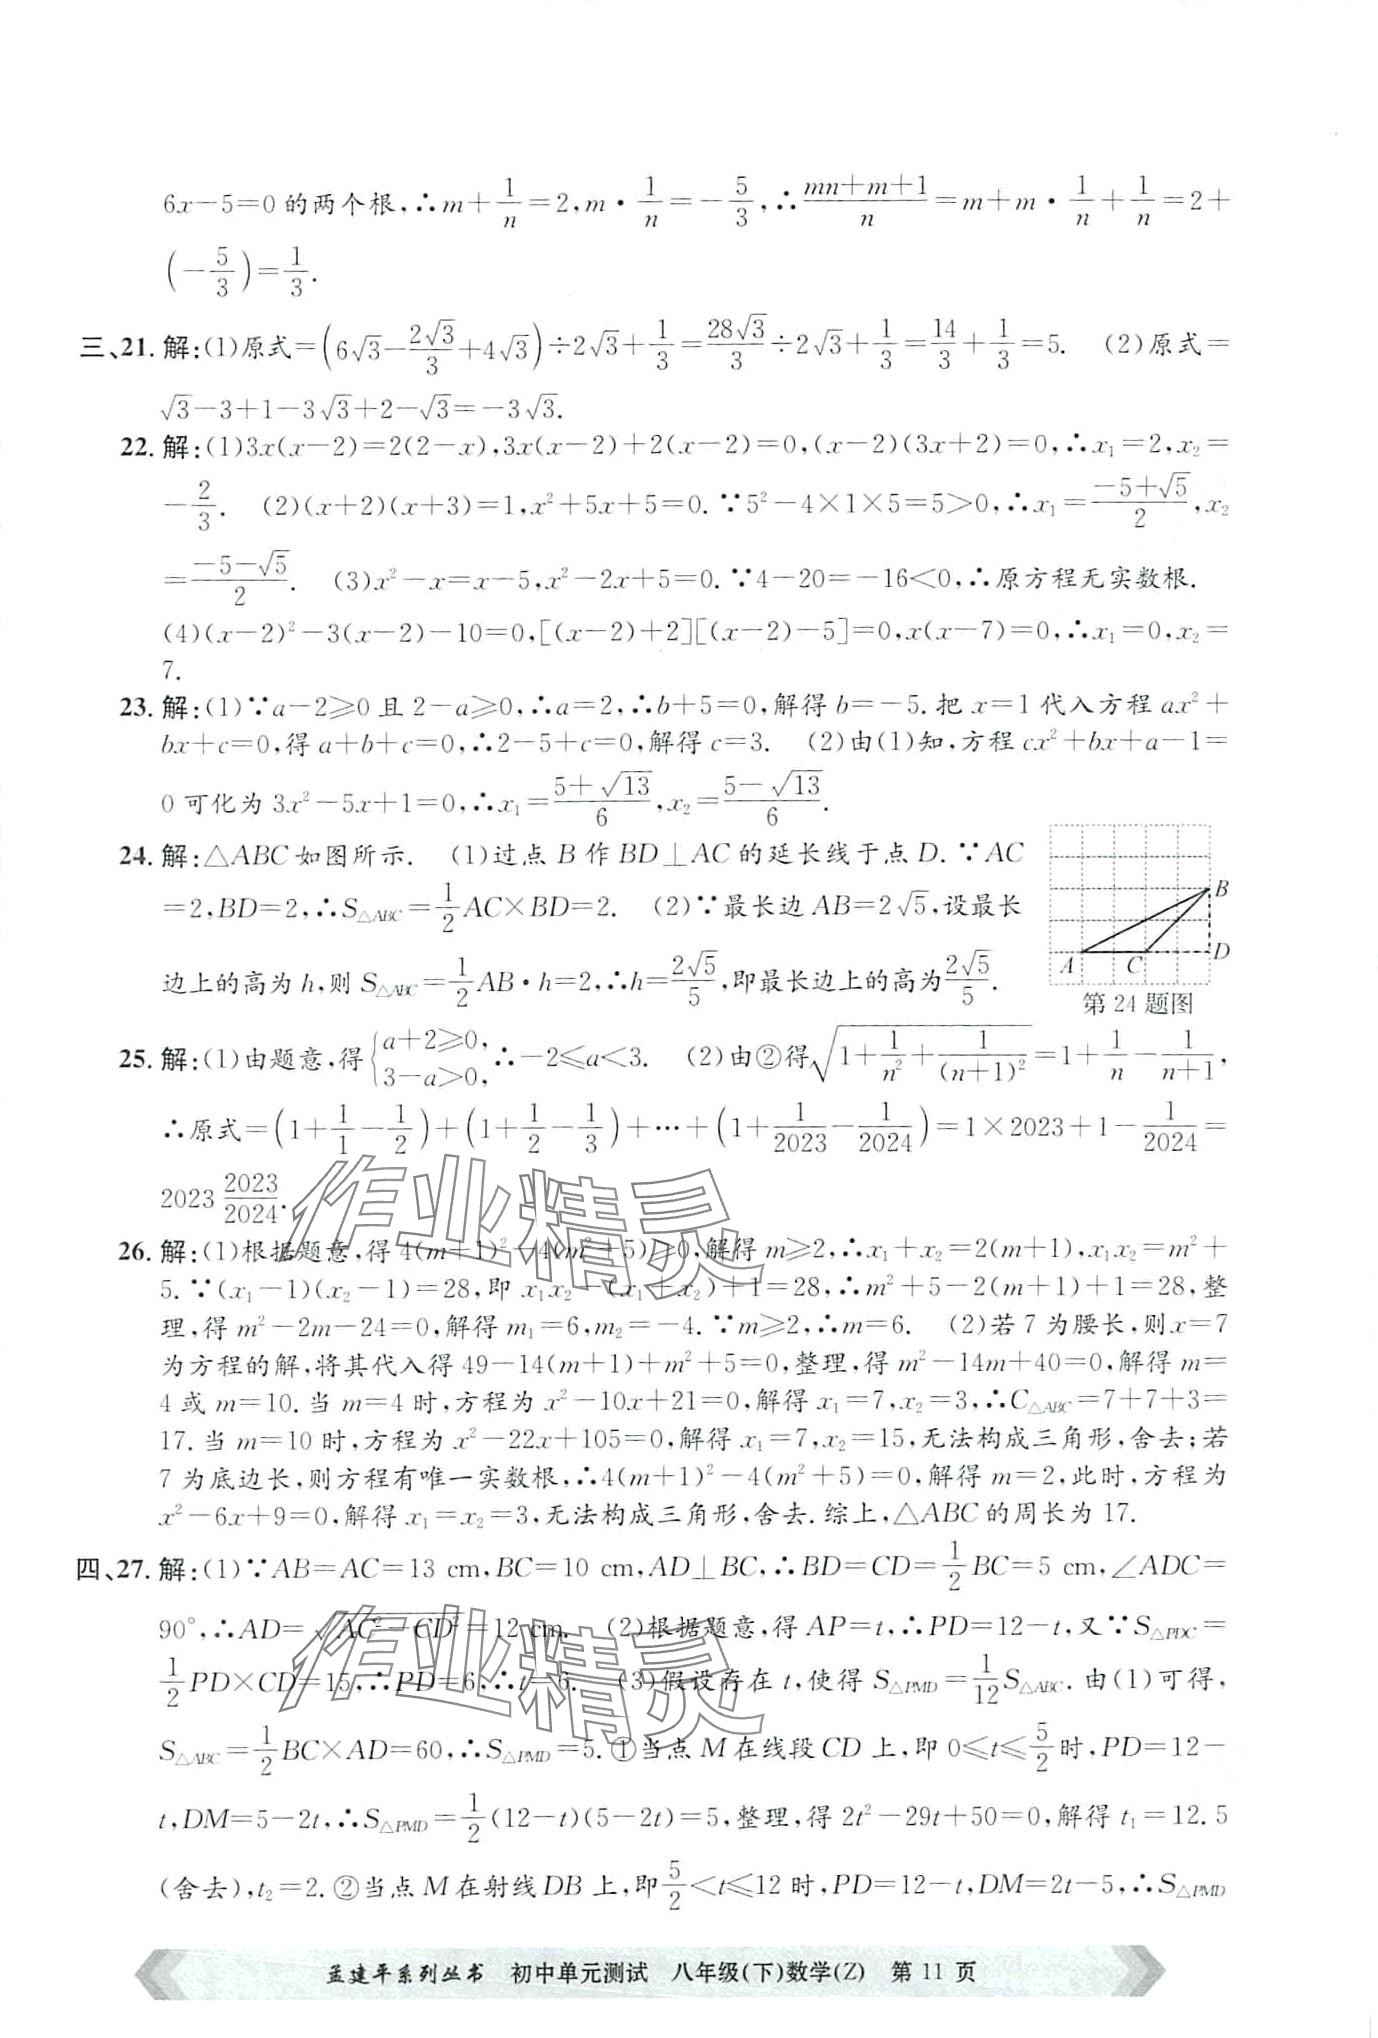 6x-5=0的两个根,∴m+1/n=2,m·1/n=-5/3,∴(mn+m+1)/n=m+m·1/n+1/n=2+
(-5/3)=1/3.
三、21. 解:(1)原式=(6√3-2√3/3+4√3)÷2√3+1/3=28√3/3÷2√3+1/3=14/3+1/3=5. (2)原式=
√3-3+1-3√3+2-√3=-3√3.
22. 解:(1)3x(x-2)=2(2-x),3x(x-2)+2(x-2)=0,(x-2)(3x+2)=0,∴x₁=2,x₂=
-2/3. (2)(x+2)(x+3)=1,x²+5x+5=0.∵5²-4×1×5=5>0,∴x₁=(-5+√5)/2,x₂
=(-5-√5)/2. (3)x²-x=x-5,x²-2x+5=0.∵4-20=-16<0,∴原方程无实数根.
(4)(x-2)²-3(x-2)-10=0,[(x-2)+2][(x-2)-5]=0,x(x-7)=0,∴x₁=0,x₂=
7.
23. 解:(1)∵a-2≥0且2-a≥0,∴a=2,∴b+5=0,解得b=-5.把x=1代入方程ax²+
bx+c=0,得a+b+c=0,∴2-5+c=0,解得c=3. (2)由(1)知,方程cx²+bx+a-1=
0可化为3x²-5x+1=0,∴x₁=(5+√13)/6,x₂=(5-√13)/6.
24. 解:△ABC如图所示. (1)过点B作BD⊥AC的延长线于点D.∵AC
=2,BD=2,∴S△ABC=1/2AC×BD=2. (2)∵最长边AB=2√5,设最长
边上的高为h,则S△ABC=1/2AB·h=2,∴h=2√5/5,即最长边上的高为2√5/5.
B
A C D
第24题图
25. 解:(1)由题意,得{a+2≥0, 3-a>0,∴-2≤a<3. (2)由②得√(1+1/n²+1/(n+1)²)=1+1/n-1/(n+1),
∴原式=(1+1/1-1/2)+(1+1/2-1/3)+…+(1+1/2023-1/2024)=1×2023+1-1/2024=
2023 2023/2024.
26. 解:(1)根据题意,得4(m+1)²-4(m²+5)≥0,解得m≥2,∴x₁+x₂=2(m+1),x₁x₂=m²+
5.∵(x₁-1)(x₂-1)=28,即x₁x₂-(x₁+x₂)+1=28,∴m²+5-2(m+1)+1=28,整
理,得m²-2m-24=0,解得m₁=6,m₂=-4.∵m≥2,∴m=6. (2)若7为腰长,则x=7
为方程的解,将其代入得49-14(m+1)+m²+5=0,整理,得m²-14m+40=0,解得m=
4或m=10.当m=4时,方程为x²-10x+21=0,解得x₁=7,x₂=3,∴C△ABC=7+7+3=
17.当m=10时,方程为x²-22x+105=0,解得x₁=7,x₂=15,无法构成三角形,舍去;若
7为底边长,则方程有唯一实数根,∴4(m+1)²-4(m²+5)=0,解得m=2,此时,方程为
x²-6x+9=0,解得x₁=x₂=3,无法构成三角形,舍去.综上,△ABC的周长为17.
四、27. 解:(1)∵AB=AC=13 cm,BC=10 cm,AD⊥BC,∴BD=CD=1/2BC=5 cm,∠ADC=
90°,∴AD=√(AC²-CD²)=12 cm. (2)根据题意,得AP=t,∴PD=12-t,又∵S△PDC=
1/2PD×CD=15,∴PD=6,∴t=6. (3)假设存在t,使得S△PMD=1/12S△ABC.由(1)可得,
S△ABC=1/2BC×AD=60,∴S△PMD=5.①当点M在线段CD上,即0≤t≤5/2时,PD=12-
t,DM=5-2t,∴S△PMD=1/2(12-t)(5-2t)=5,整理,得2t²-29t+50=0,解得t₁=12.5
(舍去),t₂=2.②当点M在射线DB上,即5/2<t≤12时,PD=12-t,DM=2t-5,∴S△PMD
作业精灵
作业精灵
孟建平系列丛书 初中单元测试 八年级(下)数学(Z) 第11页